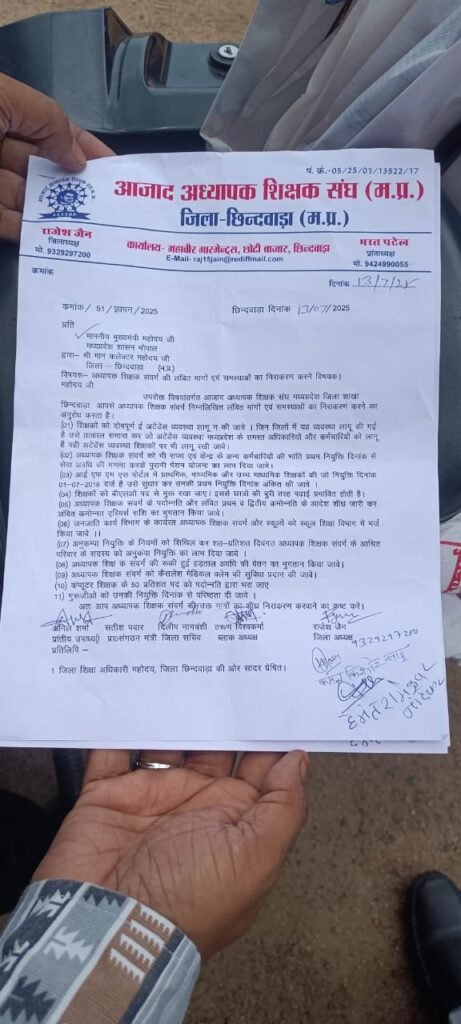 पं. क्रं.-05/25/01/13522/17
आजाद अध्यापक शिक्षक संघ (म.प्र.)
जिला-छिन्दवाड़ा (म.प्र.)
राजेश जैन
जिलाध्यक्ष
मो. 9329297200
कार्यालय- महावीर गारमेन्ट्स, छोटी बाजार, छिन्दवाड़ा
E-Mail- raj15jain@rediffmail.com
भरत पटेल
प्रांताध्यक्ष
मो. 9424990055
क्रमांक
दिनांक 13/7/25
कमांक/ 51/ज्ञापन/2025 छिन्दवाड़ा दिनांक 13/07/2025
प्रति
माननीय मुख्यमंत्री महोदय जी
मध्यप्रदेश शासन भोपाल
द्वारा- श्री मान कलेक्टर महोदय जी
जिला - छिन्दवाड़ा (म.प्र.)
विषयः- अध्यापक शिक्षक संवर्ग की लंबित मांगों एवं समस्याओं का निराकरण करने विषयक।
महोदय जी
उपरोक्त विषयांतर्गत आजाद अध्यापक शिक्षक संघ मध्यप्रदेश जिला शाखा
छिन्दवाड़ा आपसे अध्यापक शिक्षक संवर्ग निम्नलिखित लंबित मांगों एवं समस्याओं का निराकरण करने का
अनुरोध करता है।
(01) शिक्षकों को दोषपूर्ण ई अटेडेंस व्यवस्था लागू न की जावे । जिन जिलों में यह व्यवस्था लागू की गई
है उसे तत्काल समाप्त कर जो अटेडेंस व्यवस्था मध्यप्रदेश के समस्त अधिकारियों और कर्मचारियों को लागू
है वही अटेडेंस व्यवस्था शिक्षकों पर भी लागू रखी जावे।
(02) अध्यापक शिक्षक संवर्ग को भी राज्य एवं केन्द्र के अन्य कर्मचारियों की भांति प्रथम नियुक्ति दिनांक से
सेवा अवधि की गणना करके पुरानी पेंशन योजना का लाभ दिया जावे।
(03) आई एफ एम एस पोर्टल में प्राथमिक, माध्यमिक और उच्च माध्यमिक शिक्षकों की जो नियुक्ति दिनांक
01-07-2018 दर्ज है उसे सुधार कर उनकी प्रथम नियुक्ति दिनांक अंकित की जावे ।
(04) शिक्षकों को बीएलओ पद से मुक्त रखा जाए। इससे छात्रो की बुरी तरह पढाई प्रभावित होती है।
(05) अध्यापक शिक्षक संवर्ग के पदोन्नति और लंबित प्रथम व द्वितीय क्रमोन्नति के आदेश शीघ्र जारी कर
लंबित क्रमोन्नत एरियर्स राशि का भुगतान किया जावे।
(06) जनजाति कार्य विभाग के कार्यरत अध्यापक शिक्षक संवर्ग और स्कूलों को स्कूल शिक्षा विभाग में मर्ज
किया जावे ।।
(07) अनुकम्पा नियुक्ति के नियमों को शिथिल कर शत-प्रतिशत दिवंगत अध्यापक शिक्षक संवर्ग के आश्रित
परिवार के सदस्य को अनुकंपा नियुक्ति का लाभ दिया जावे ।
(08) अध्यापक शिक्ष क संवर्ग की रूकी हुई हडताल अवधि की वेतन का भुगतान किया जावे।
(09) अध्यापक शिक्षक संवर्ग को कैसलेश मेडिकल क्लेम की सुविधा प्रदान की जावे।
(10) कंप्यूटर शिक्षक के 50 प्रतिशत पद को पदोन्नति द्वारा भरा जाए
11) गुरूजीओ को उनकी नियुक्ति दिनांक से वरिष्ठता दी जावे ।
अतः आप अध्यापक शिक्षक संवर्ग की उक्त मांगों का शीघ्र निराकरण करवाने का कष्ट करें।
अनिल शर्मा सतीश पवार दिलीप नागवंशी तरूण विश्वकर्मा राजेश जैन
प्रांतीय उपाध्य़क्ष प्रा०संगठन मंत्री जिला सचिव ब्लाक अध्यक्ष जिला अध्यक्ष 9329297200
प्रतिलिपि –
1 जिला शिक्षा अधिकारी महोदय, जिला छिन्दवाड़ा की ओर सादर प्रेषित।